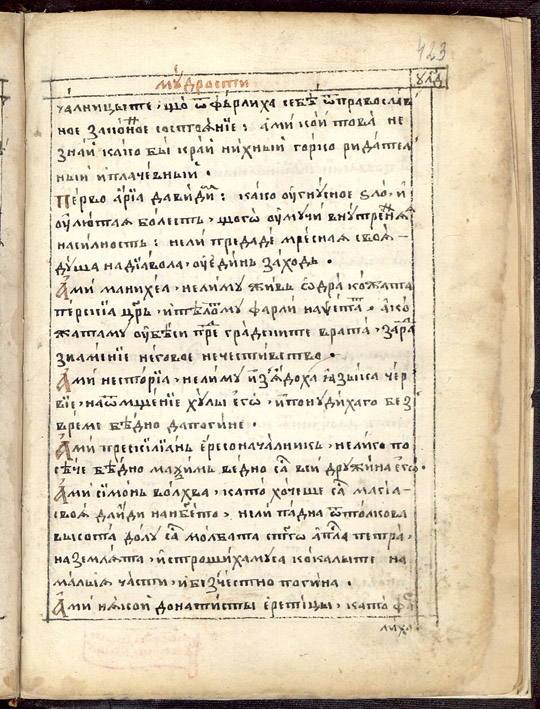 423
мꙋ́дрости
ѵ҃лд
ча́лницыте, що ѡ҆ фъ́рлиха себѣ̀ ѿ правосла́в
ное зако́нное состоѧ́нїе : а҆мѝ ко́и това̀ не
зна́й ка́ко бы̀ кра́й ни́хный го́рко рида́тел
ный и҆ плаче́вный .
Пе́рво а҆́рїа давиди̑ : ка́ко ѹ҆гну́сное ѕло̀, и҆
ѹ҆лю́тая бо́лесть, що́то ѹ҆мꙋ́чи внꙋ́тренная
наси́лность : не ли предадѐ мре́сная своѧ̀
дꙋ́ша на дїа́вола, ѹ҆ еди́нь захо́дь .
А҆мѝ манихе́а, не ли́ мꙋ жи́въ ѡ҆дра̀ ко́жата
пе́рсїиа ца́ръ, и҆ тѣ́лото фа́рли на ѱе́та . а҆ ко́
жата мꙋ ѹ҆бѣ́си пре̑ гра́дските врата̀, зара̑
зна́менїе не́говое нече́стивство .
А҆мѝ несто́рїа, не ли́ мꙋ и҆зꙗ́доха ꙗ҆зы́ка че́р
вїе, на ѿмще́нїе хꙋ́лы е҆гѡ̀, и҆ понꙋди́ха го без̾
вре́ме бѣ́дно да поги́не .
А҆мѝ преси́ллїа́нь е҆ресонача́лникъ, не ли́ го по
сѣ́че бѣ́дно маѯи́мь ве́дно са̑ всѝ дрꙋжи́на е҆гѡ̀ .
А҆мѝ сі́мѡнь во́лхва, като̀ хо́чеше са̑ ма́гїа
своѧ̀ да и҆́ди на нб҃ето, не ли́ па́дна ѿ толко́ва
высота̀ до́лꙋ са̑ мо́лбата ст҃гѡ а҆пⷭ҇ла петра̀,
на земля́та, и҆ строши́ха мꙋ са ко́калыте на
ма́лыꙗ ча́сти, и҆ безче́стно поги́на .
А҆мѝ нѧ́кои донати́сты е҆рети́цы, като̀ фъ̑
лиха